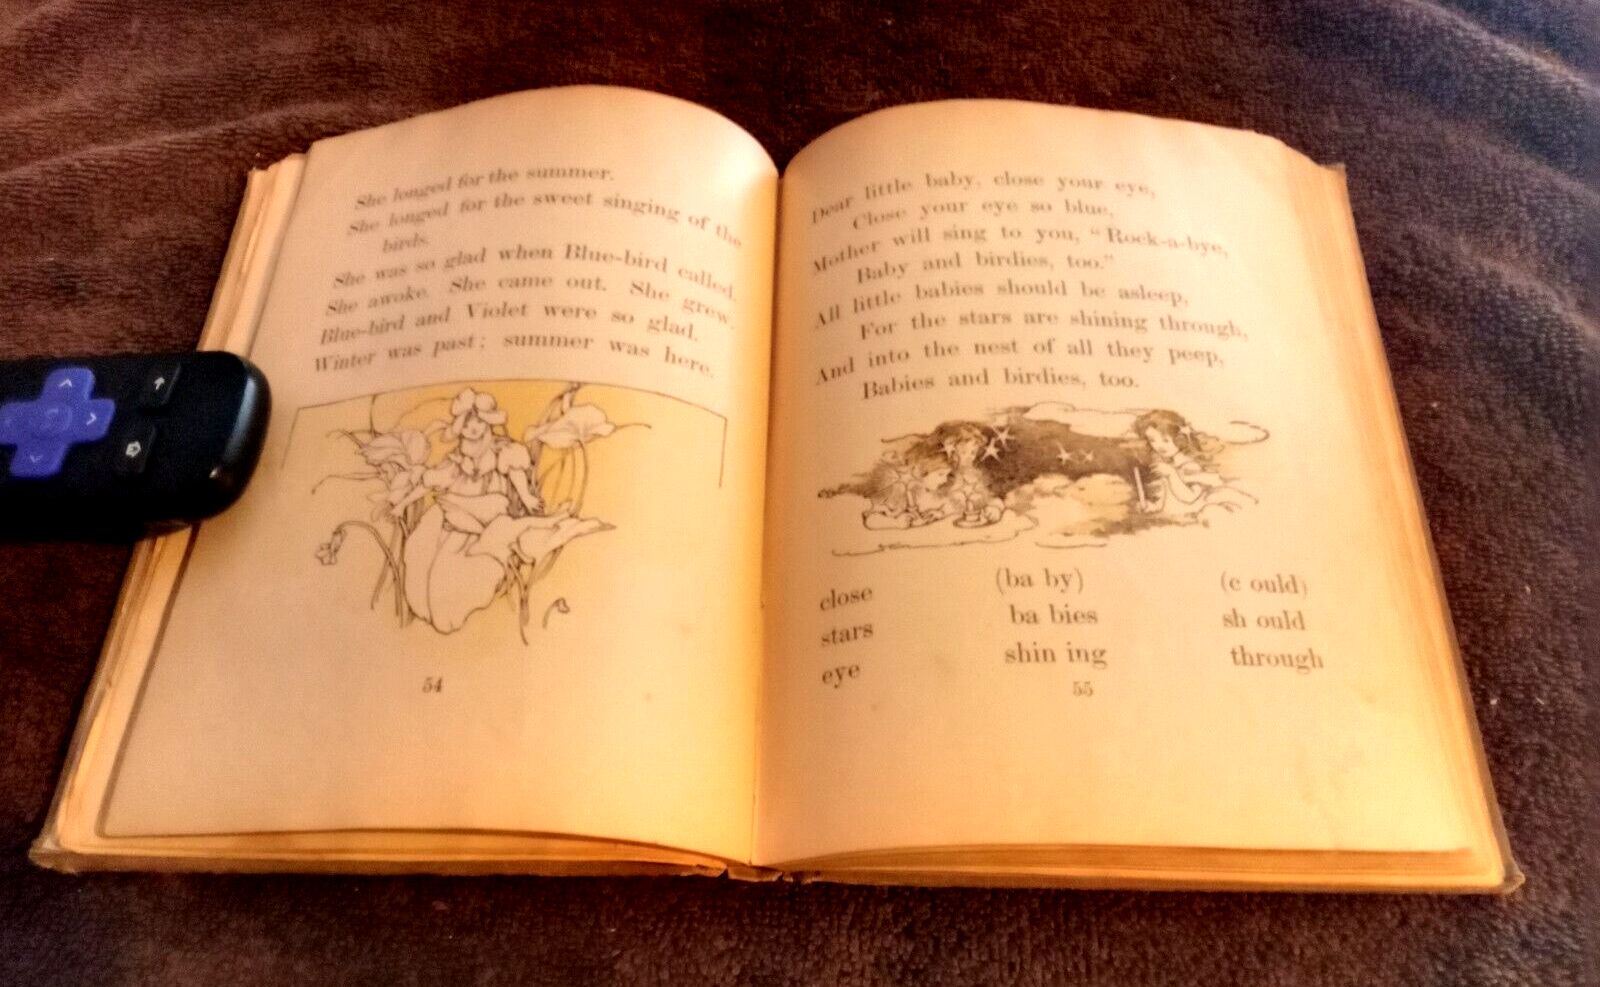 She longed for the summer.
She longed for the sweet singing of the
birds.
She was so glad when Blue-bird called.
She awoke. She came out. She grew.
Blue-bird and Violet were so glad.
Winter was past; summer was here.
54
Dear little baby, close your eye,
Close your eye so blue,
Mother will sing to you, "Rock-a-bye,
Baby and birdies, too."
All little babies should be asleep,
For the stars are shining through,
And into the nest of all they peep,
Babies and birdies, too.
close (ba by) (c ould)
stars ba bies sh ould
eye shin ing through
55